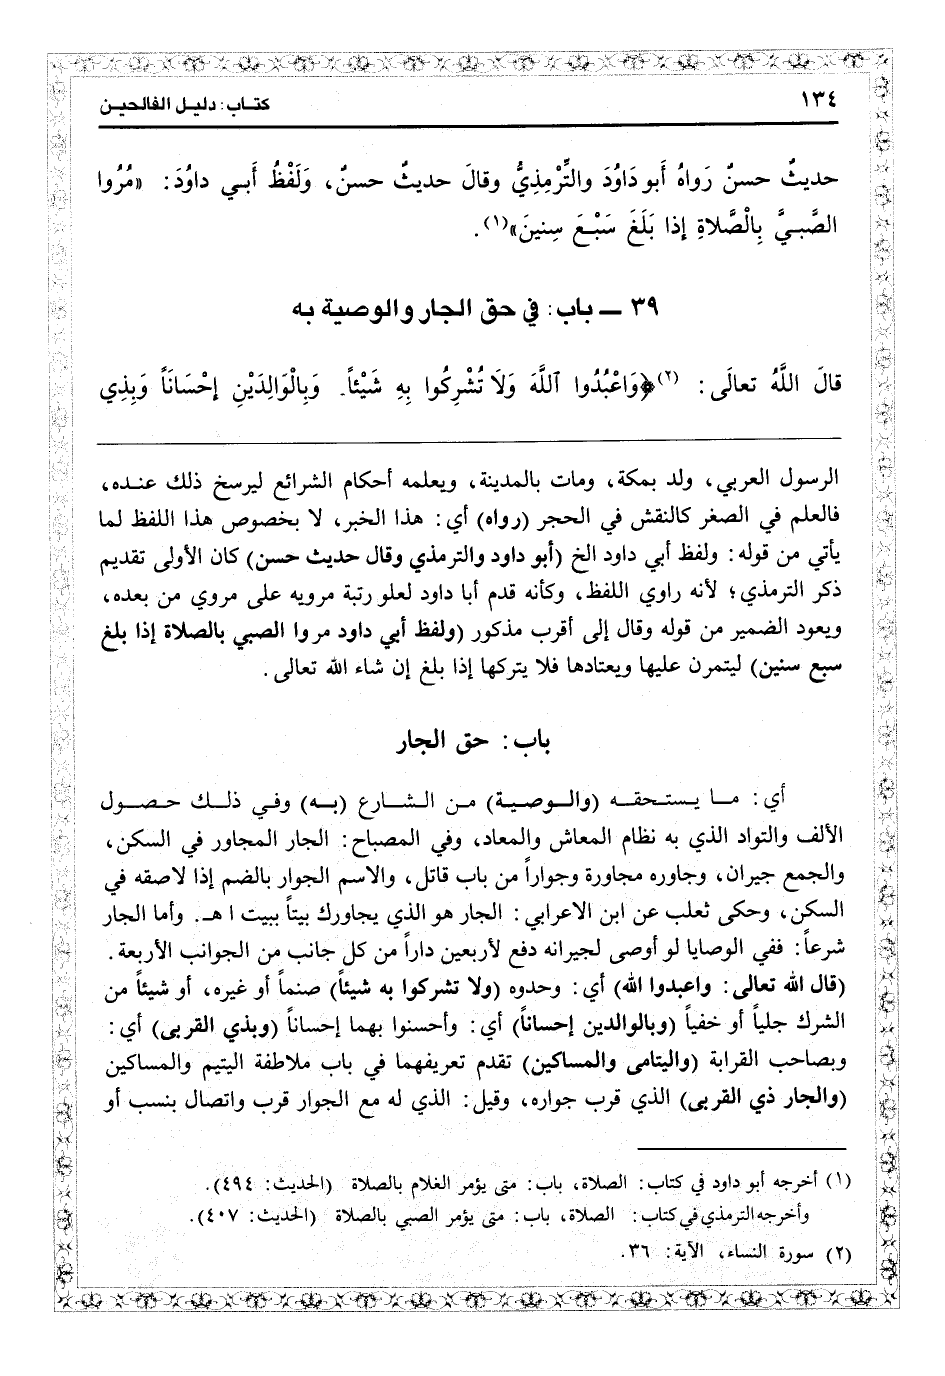 ١٣٤
كتاب: دليل الفالحين
حديثٌ حسنٌ رَواهُ أَبو دَاوُدَ والتِّرْمِذِيُّ وقالَ حديثٌ حسنٌ، وَلَفْظُ أَبي داوُدَ: «مُرُوا
الصَّبيَّ بِالْصَّلاةِ إذا بَلَغَ سَبْعَ سِنينَ»(١).
٣٩ ـ باب: في حق الجار والوصية به
قالَ اللَّهُ تعالَى: (٢)﴿وَاعْبُدُوا ٱللَّهَ وَلَا تُشْرِكُوا بِهِ شَيْئاً. وَبِالْوَالِدَيْنِ إحْسَانَاً وَبِذِي
الرسول العربي، ولد بمكة، ومات بالمدينة، ويعلمه أحكام الشرائع ليرسخ ذلك عنده،
فالعلم في الصغر كالنقش في الحجر (رواه) أي: هذا الخبر، لا بخصوص هذا اللفظ لما
يأتي من قوله: ولفظ أبي داود الخ (أبو داود والترمذي وقال حديث حسن) كان الأولى تقديم
ذكر الترمذي؛ لأنه راوي اللفظ، وكأنه قدم أبا داود لعلو رتبة مرويه على مروي من بعده،
ويعود الضمير من قوله وقال إلى أقرب مذكور (ولفظ أبي داود مروا الصبي بالصلاة إذا بلغ
سبع سنين) ليتمرن عليها ويعتادها فلا يتركها إذا بلغ إن شاء الله تعالى.
باب: حق الجار
أي: ما يستحقه (والوصية) من الشارع (به) وفي ذلك حصول
الألف والتواد الذي به نظام المعاش والمعاد، وفي المصباح: الجار المجاور في السكن،
والجمع جيران، وجاوره مجاورة وجواراً من باب قاتل، والاسم الجوار بالضم إذا لاصقه في
السكن، وحكى ثعلب عن ابن الاعرابي: الجار هو الذي يجاورك بيتاً ببيت ا هـ. وأما الجار
شرعاً: ففي الوصايا لو أوصى لجيرانه دفع لأربعين داراً من كل جانب من الجوانب الأربعة.
(قال الله تعالى: واعبدوا الله) أي: وحدوه (ولا تشركوا به شيئاً) صنماً أو غيره، أو شيئاً من
الشرك جلياً أو خفياً (وبالوالدين إحساناً) أي: وأحسنوا بهما إحساناً (وبذي القربى) أي:
وبصاحب القرابة (واليتامى والمساكين) تقدم تعريفهما في باب ملاطفة اليتيم والمساكين
(والجار ذي القربى) الذي قرب جواره، وقيل: الذي له مع الجوار قرب واتصال بنسب أو
(١) أخرجه أبو داود في كتاب: الصلاة، باب: متى يؤمر الغلام بالصلاة (الحديث: ٤٩٤).
وأخرجه الترمذي في كتاب: الصلاة، باب: متى يؤمر الصبي بالصلاة (الحديث: ٤٠٧).
(٢) سورة النساء، الآية: ٣٦.